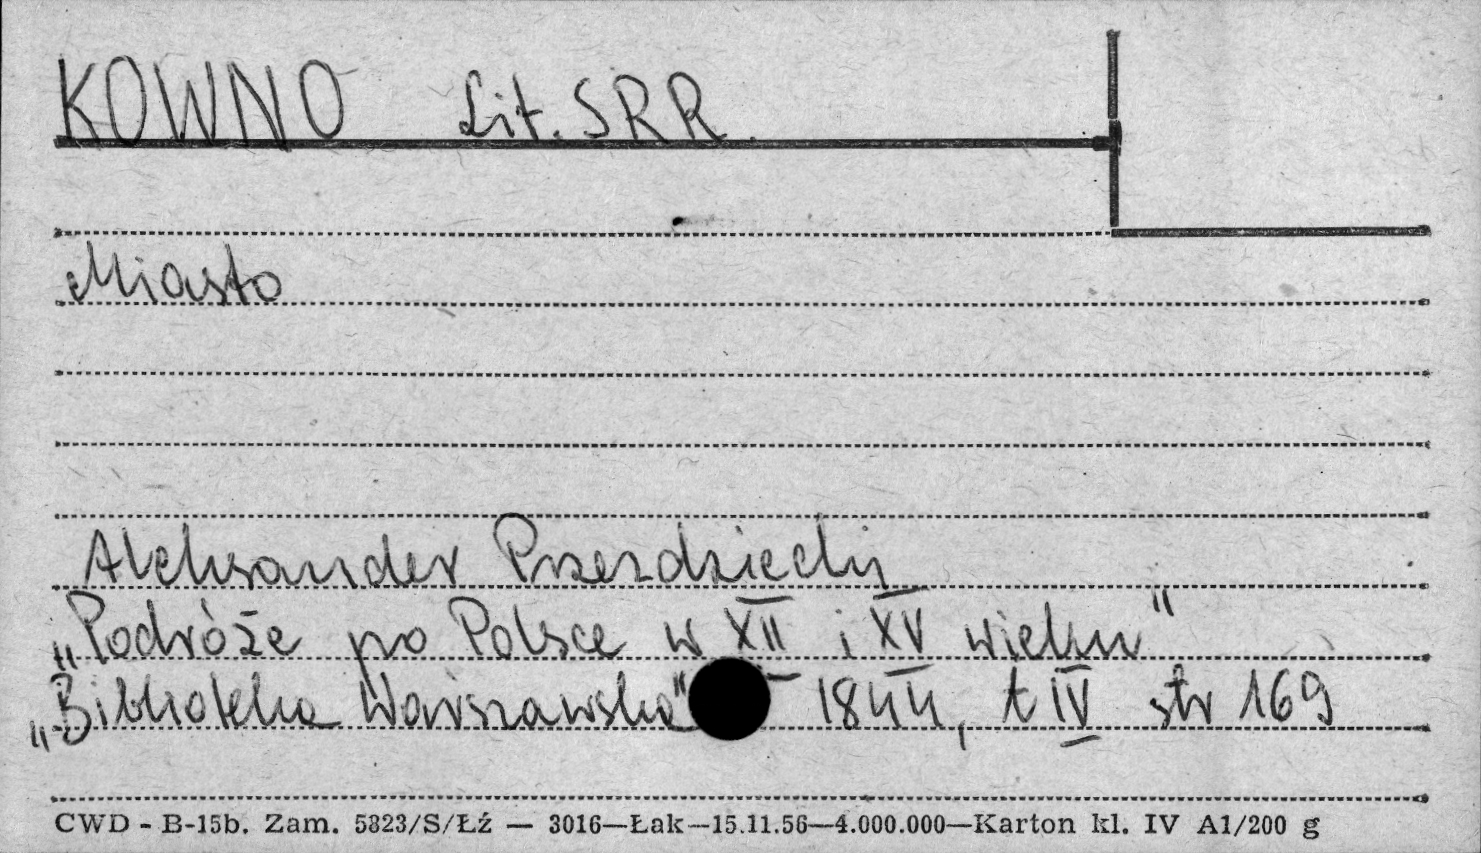 KOWNO Lit. SRR.
Miasto
Aleksander Przezdziecki
„Podróże po Polsce w XII i XV wieku"
„Biblioteka Warszawska" 1844, t IV str 169
CWD - B-15b. Zam. 5823/S/Łź — 3016—Łak—15.11.56—4.000.000—Karton kl. IV A1/200 g